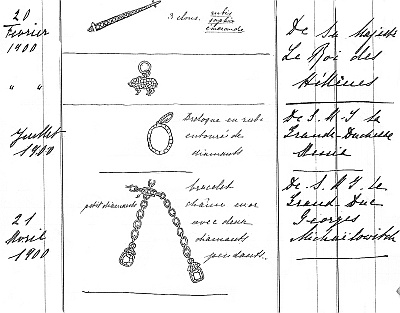 20
Février
1900
3 clous. rubis
saphir
émeraude
De Sa Majesté
Le Roi des
Hélènes
" "
Juillet
1900
entouré de
diamants
De S. M. I. la
Grande-Duchesse
Xenia
21
Avril
1900
petit diamants
bracelet
chaîne en or
avec deux
diamants
pendants.
De S. A. I. le
Grand-Duc
Georges
Michaïlowitch